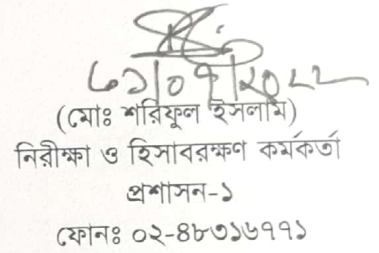 (মোঃ শরিফুল ইসলাম)
নিরীক্ষা ও হিসাবরক্ষণ কর্মকর্তা
প্রশাসন-১
ফোনঃ ০২-৪৮৩১৬৭৭১